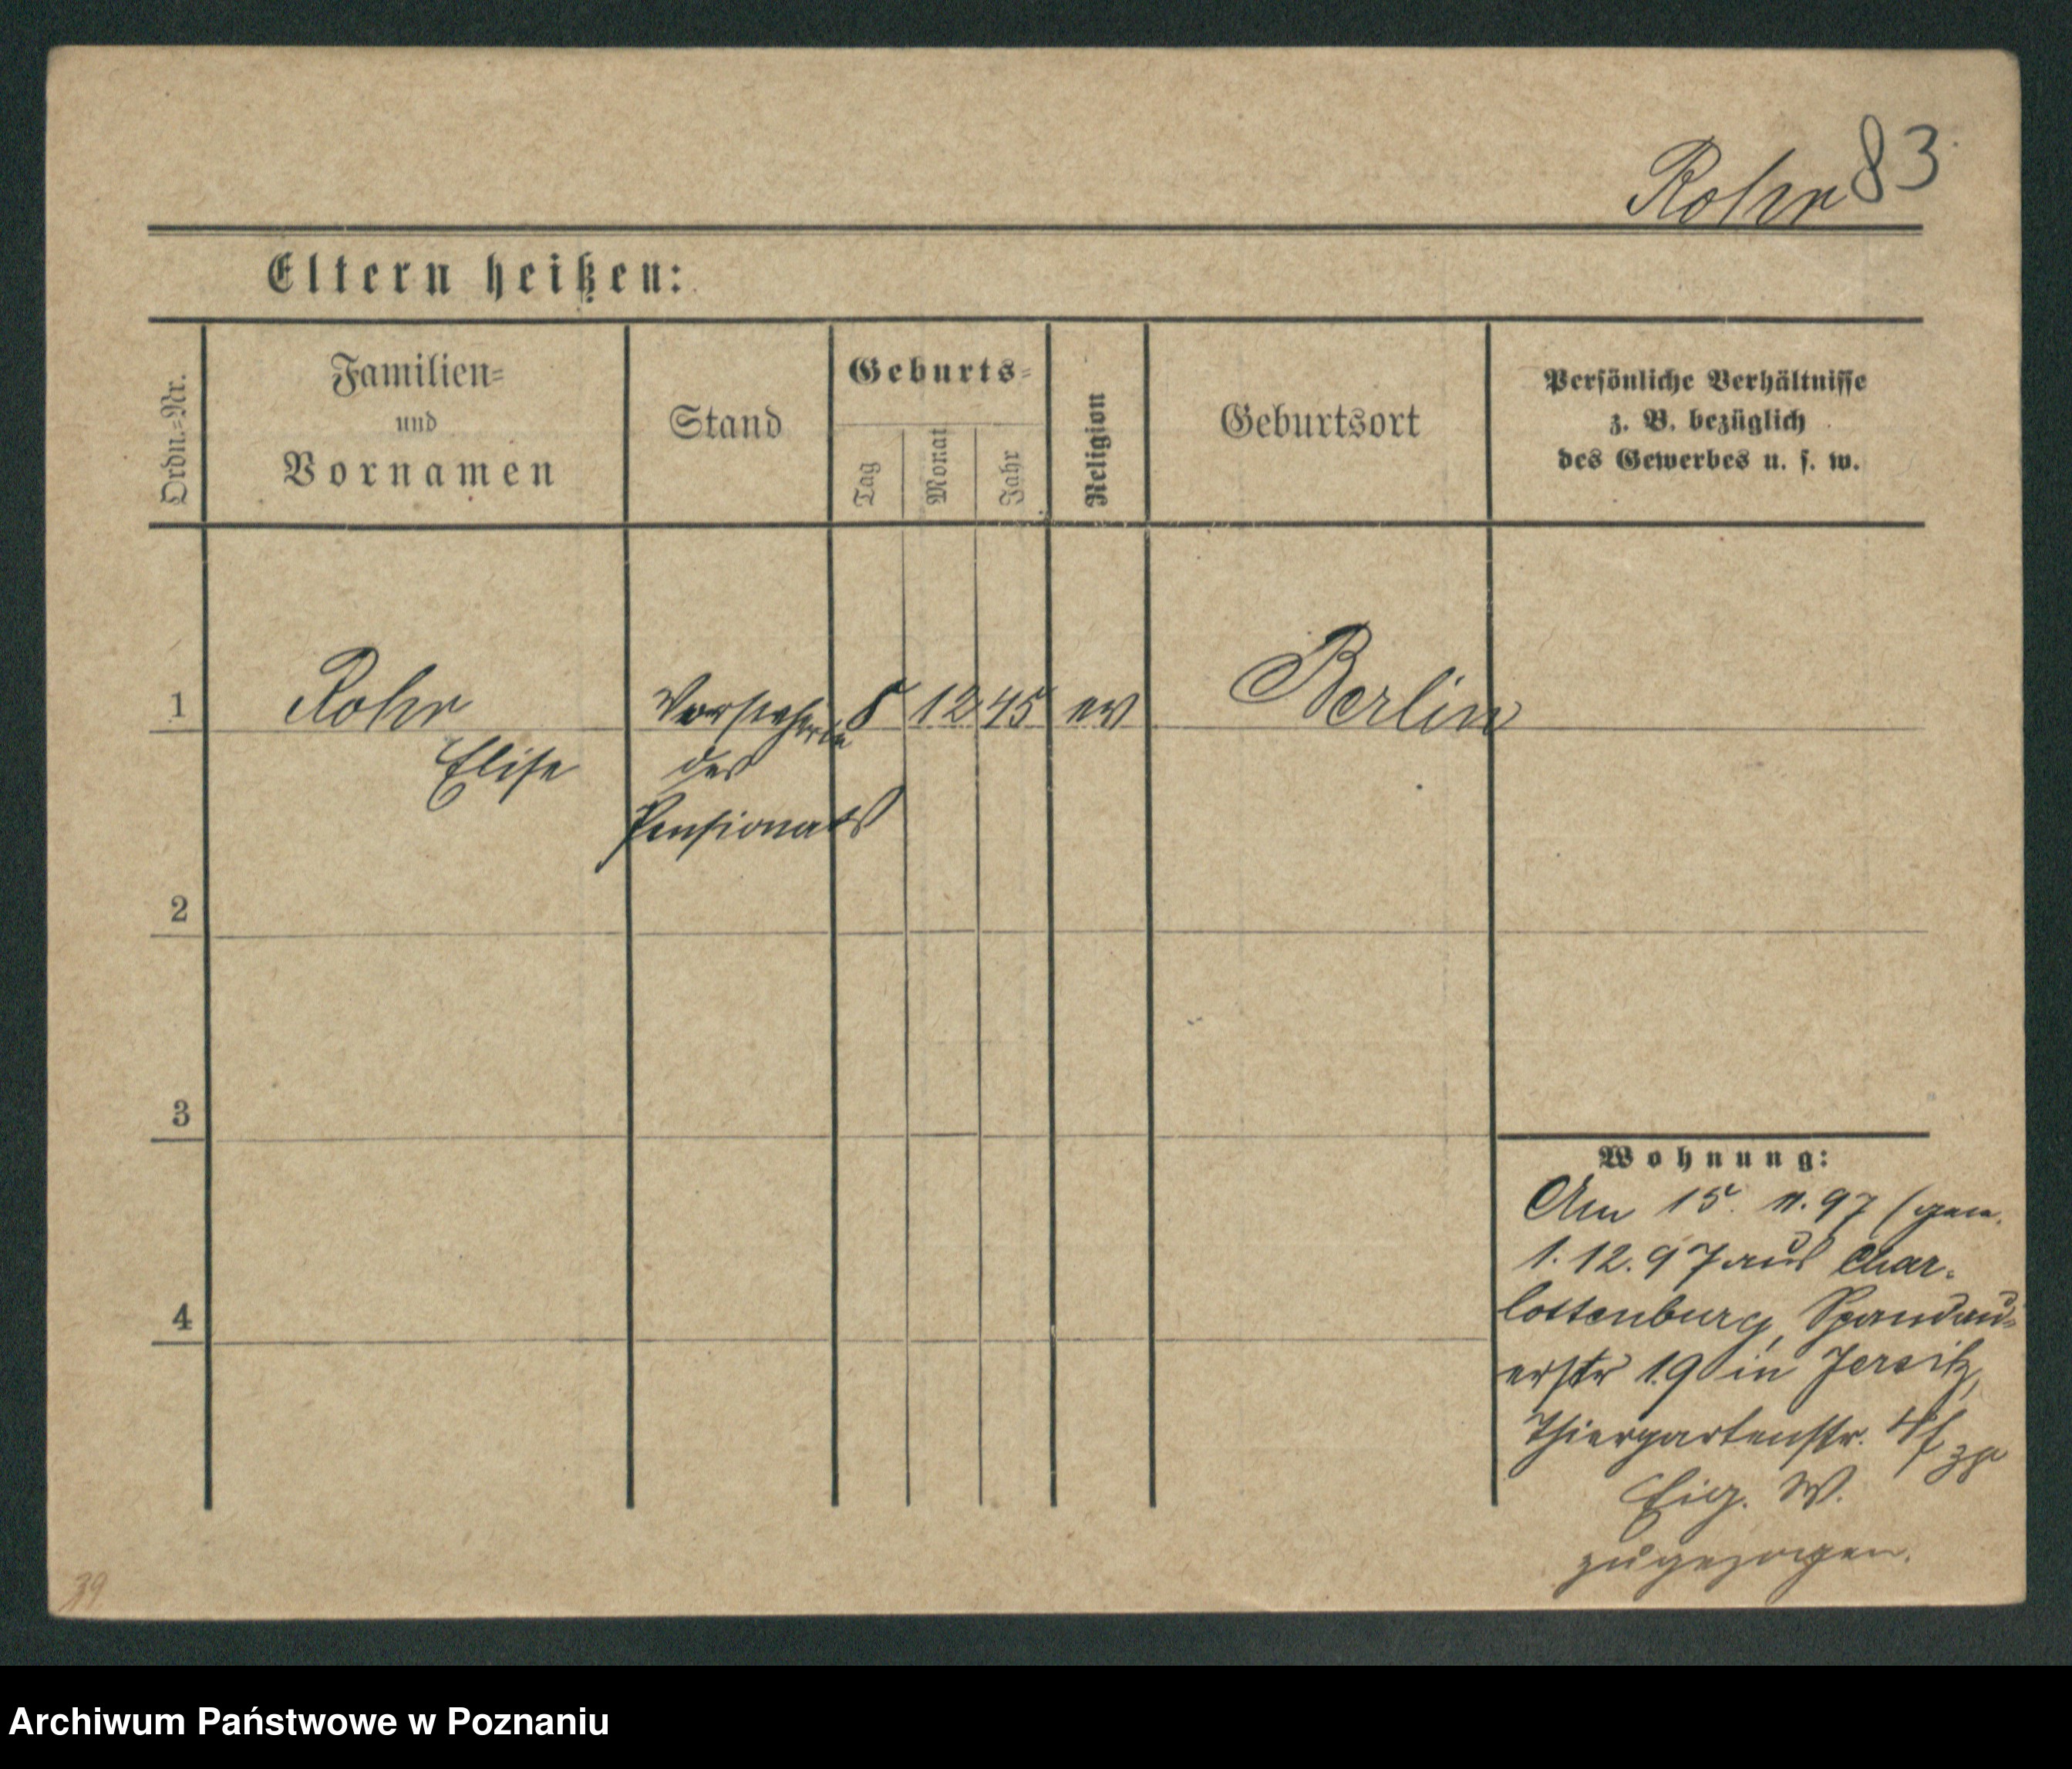 Rohr 83
Eltern heißen:
Ordn.=Nr.
Familien=
und
Vornamen
Stand
Geburts=
Tag
Monat
Jahr
Religion
Geburtsort
Persönliche Verhältnisse
z. B. bezüglich
des Gewerbes u. s. w.
1 Rohr Vorsteherin 8 12 45 ev Berlin
Elise des
Pensionats
2
3
4
Wohnung:
Am 15. 11. 97 (gem.
1. 12. 97 aus Char-
lottenburg, Spandau-
erstr 19 in Jersitz,
Thiergartenstr.
Eig. W.
zugezogen.
39
Archiwum Państwowe w Poznaniu